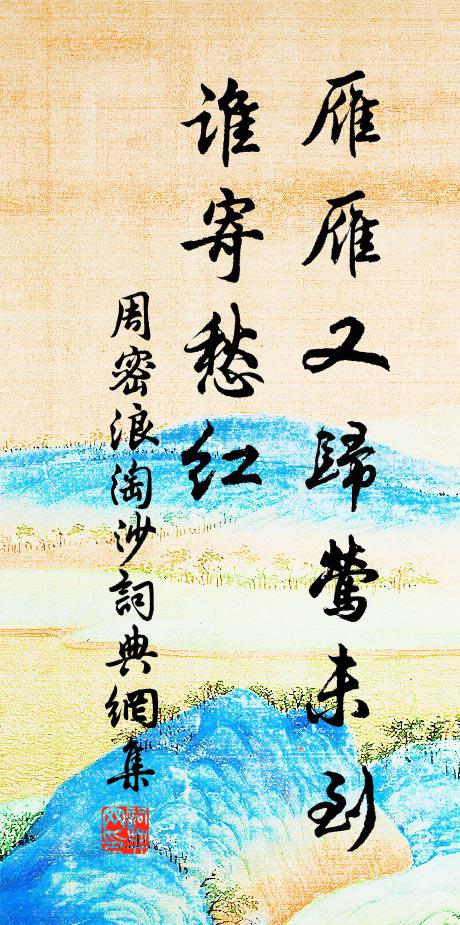 雁雁又歸鶯未到
誰寄愁紅
周密浪淘沙詞典網集